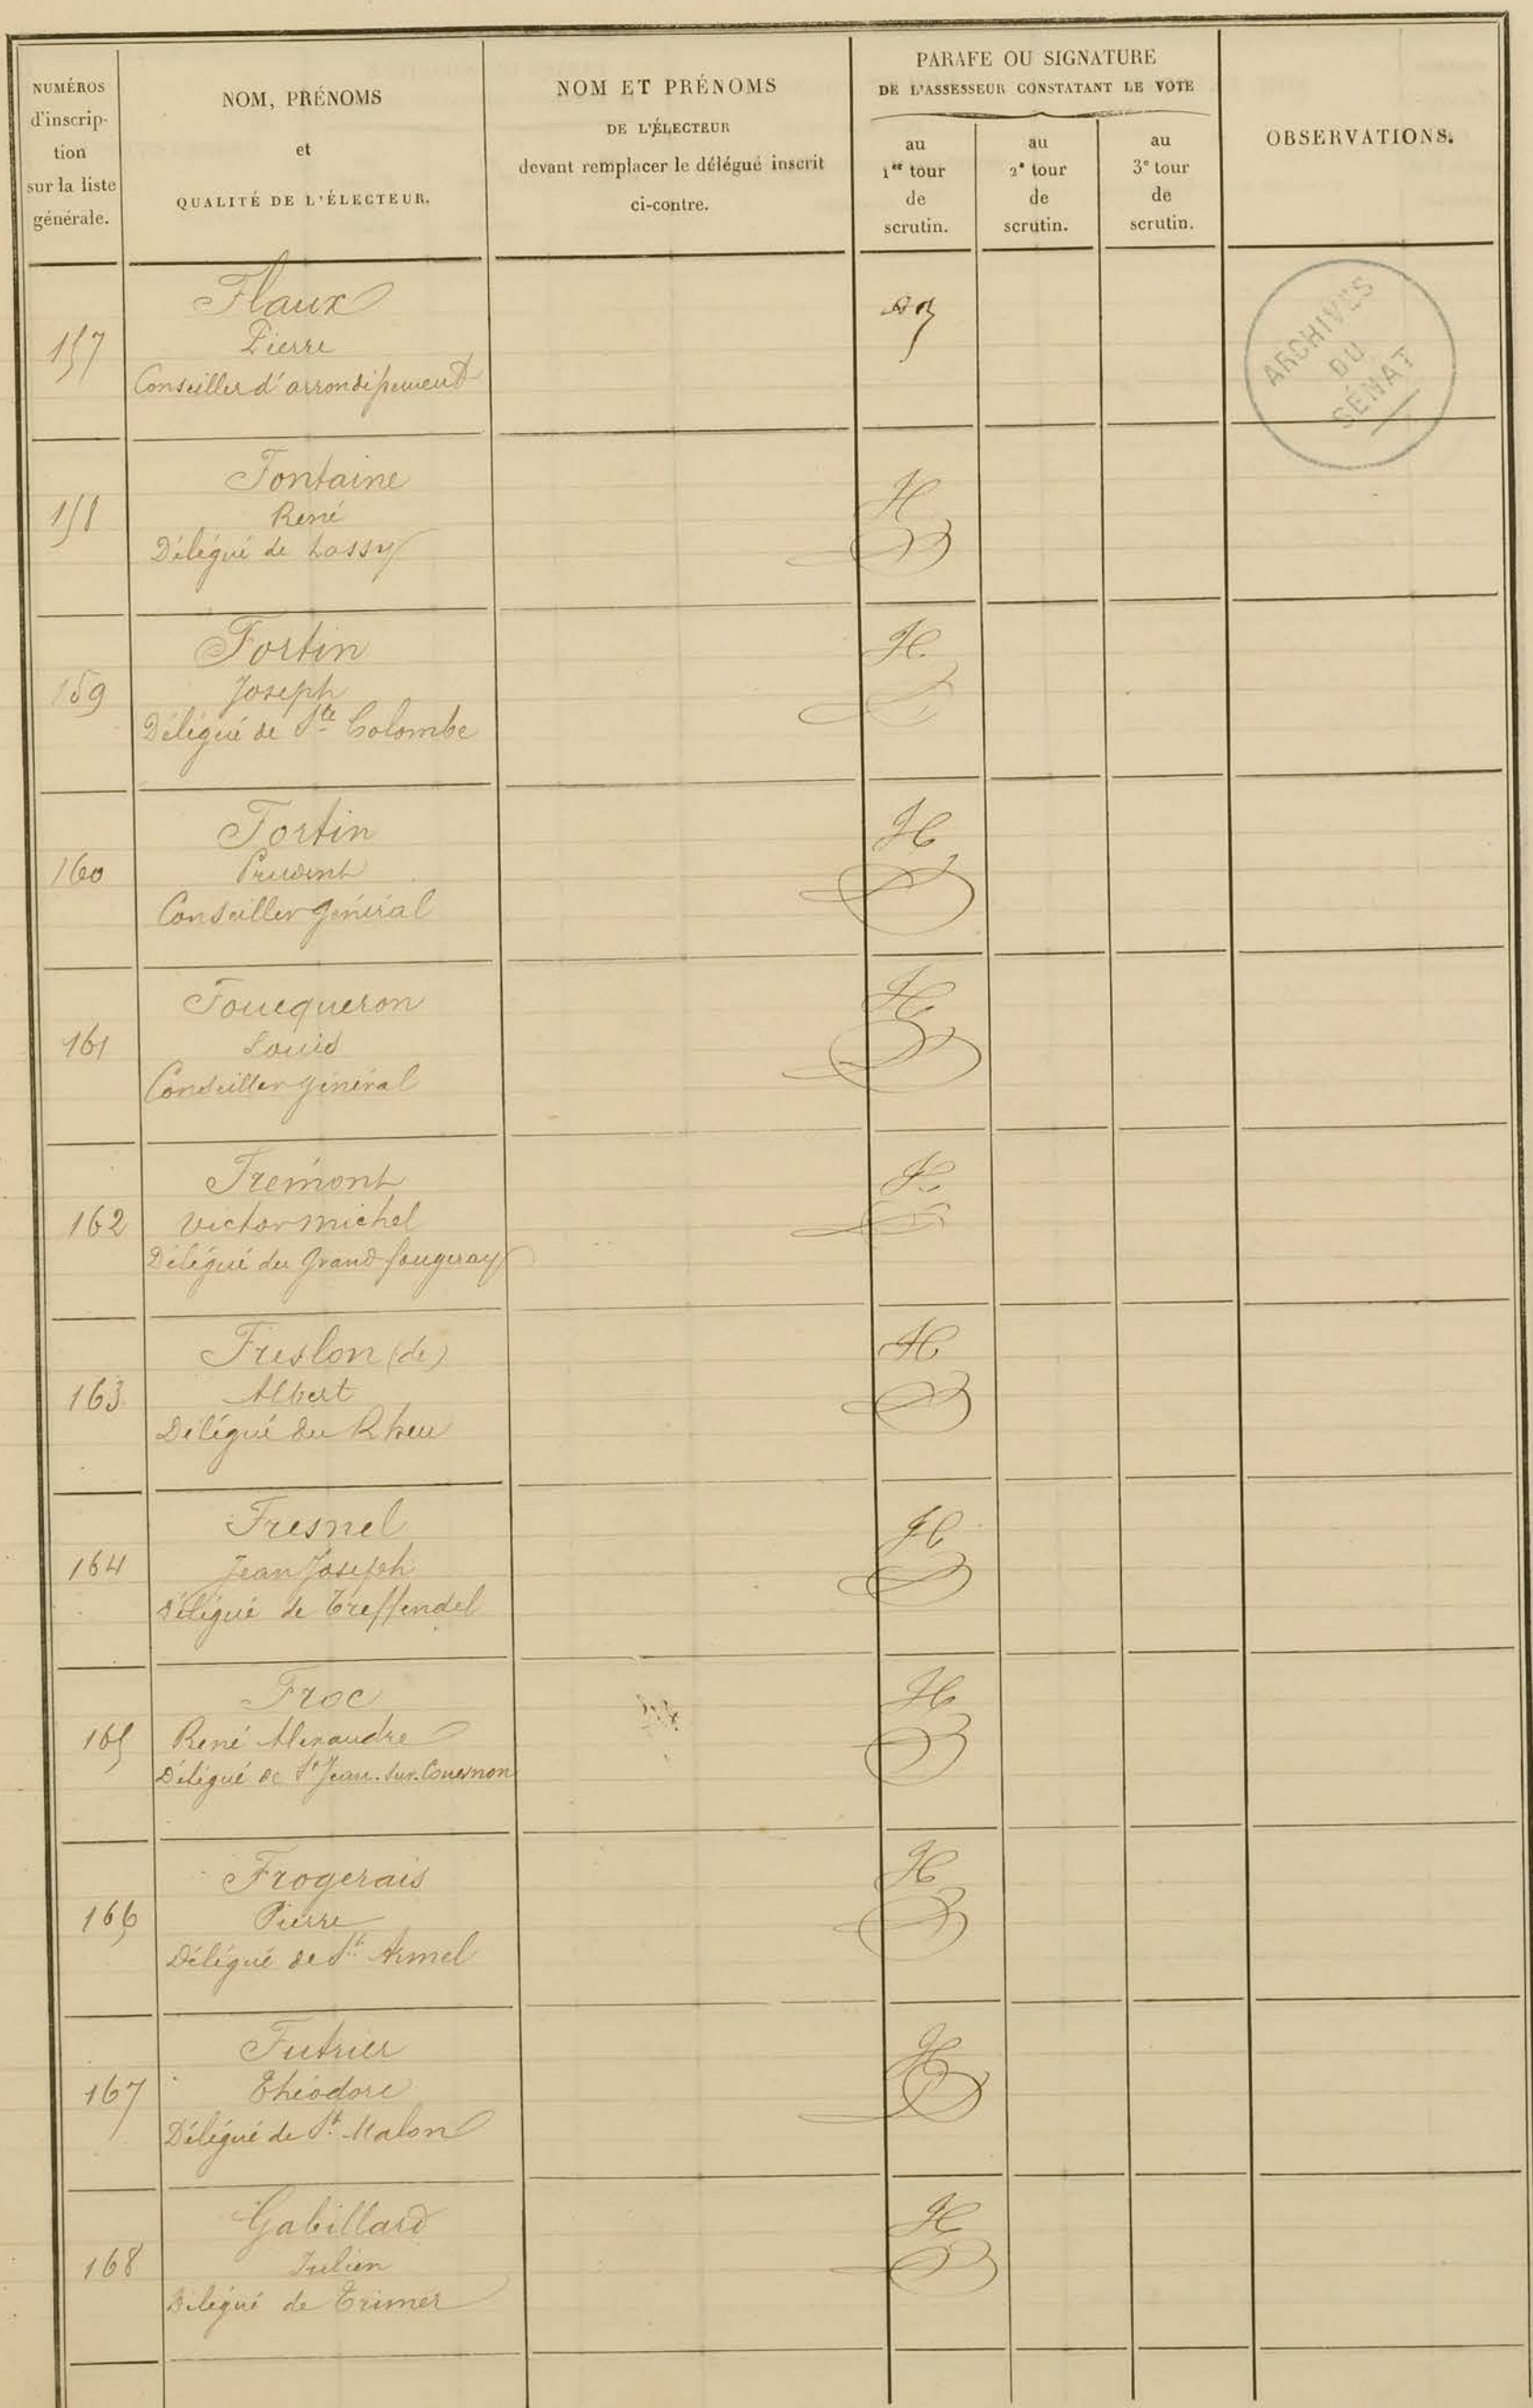 NUMÉROS
d'inscrip-
tion
sur la liste
générale.
NOM, PRÉNOMS
et
QUALITÉ DE L'ÉLECTEUR.
NOM ET PRÉNOMS
DE L'ÉLECTEUR
devant remplacer le délégué inscrit
ci-contre.
PARAFE OU SIGNATURE
DE L'ASSESSEUR CONSTATANT LE VOTE
au
1er tour
de
scrutin.
au
2e tour
de
scrutin.
au
3e tour
de
scrutin.
OBSERVATIONS.
ARCHIVES
DU
SÉNAT
Flaux
157 Pierre
Conseiller d'arrondissement
Fontaine
158 René
Délégué de Lassy
Fortin
159 Joseph
Délégué de Ste Colombe
Fortin
160 Prudent
Conseiller général
Foucqueron
161 Louis
Conseiller général
Fremont
162 Victor Michel
Délégué du Grand fougeray
Freslon (de)
163 Albert
Délégué du Rheu
Fresnel
164 Jean Joseph
Délégué de Treffendel
Froc
165 René Alexandre
Délégué de St Jean-sur-Couesnon
Frogerais
166 Pierre
Délégué de St Armel
Futrier
167 Théodore
Délégué de St Malon
Gabillard
168 Julien
Délégué de Trimer